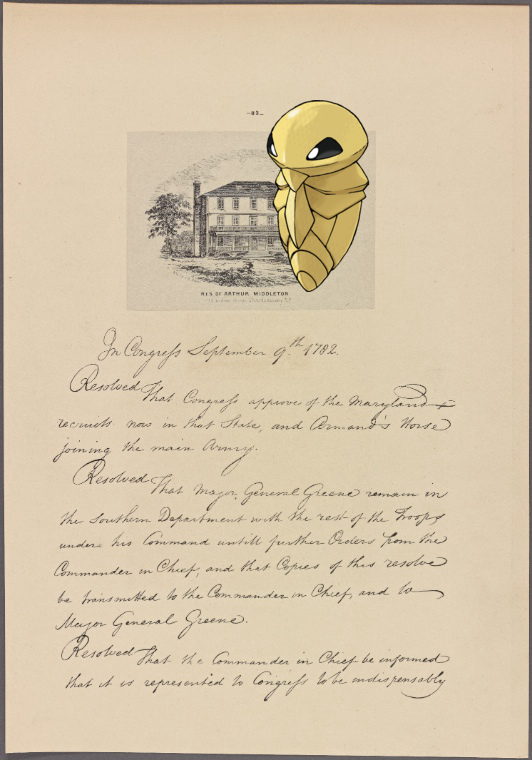 -83-
RES. OF ARTHUR MIDDLETON
In Congress September 9.th 1782.
Resolved That Congress approve of the Maryland
recruits now in that State, and Armand's Horse
joining the main Army.
Resolved That Major General Greene remain in
the Southern Department with the rest of the Troops
under his Command untill further Orders from the
Commander in Chief, and that Copies of this resolve
be transmitted to the Commander in Chief, and to
Major General Greene.
Resolved That the Commander in Chief be informed
that it is represented to Congress to be indispensably